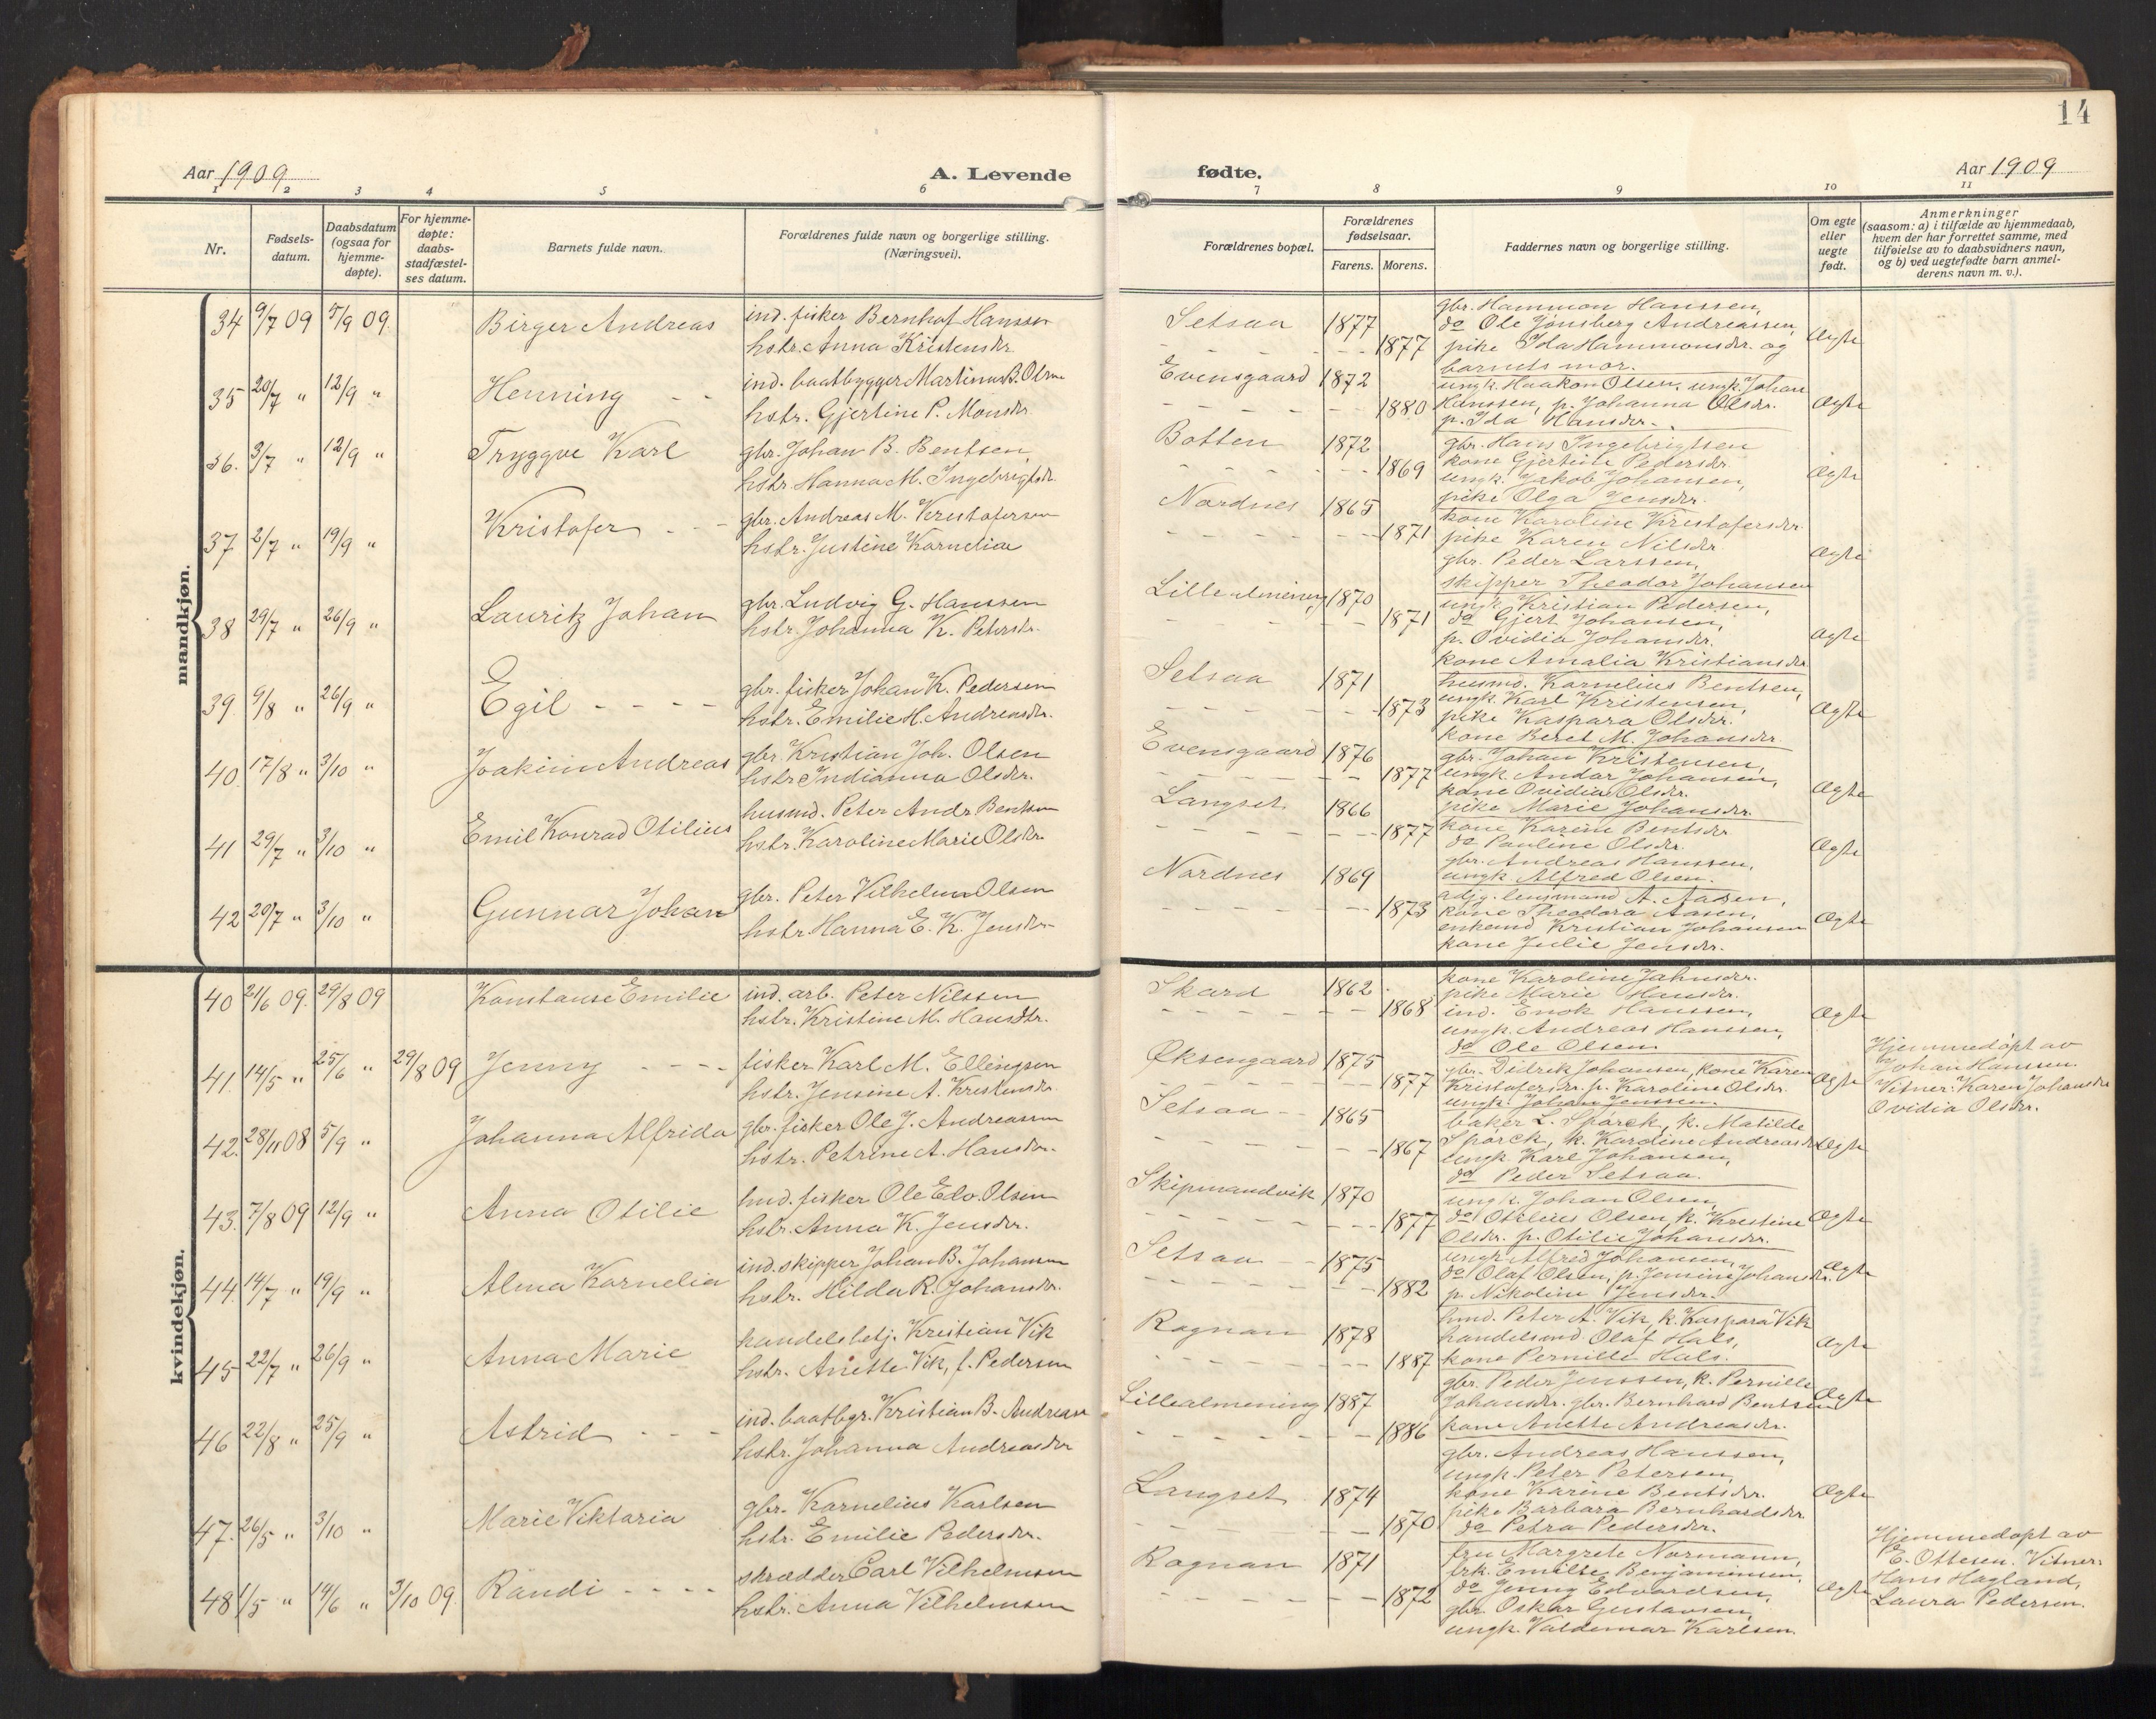 14
Aar 1909
A. Levende
fødte.
Aar 1909
1 2 3 4 5 6 7 8 9 10 11
Nr.
Fødsels-
datum.
Daabsdatum
(ogsaa for
hjemme-
døpte).
For hjemme-
døpte:
daabs-
stadfæstel-
ses datum.
Barnets fulde navn.
Forældrenes fulde navn og borgerlige stilling.
(Næringsvei).
Forældrenes bopæl.
Forældrenes
fødselsaar.
Farens. Morens.
Faddernes navn og borgerlige stilling.
Om egte
eller
uegte
født.
Anmerkninger
(saasom: a) i tilfælde av hjemmedaab,
hvem der har forrettet samme, med
tilføielse av to daabsvidners navn,
og b) ved uegtefødte barn anmel-
derens navn m. v.).
mandkjøn.
34 9/7 09 5/9 09. Birger Andreas
ind. fisker Bernhof Hanssen
hstr. Anna Kristensdr.
Setsaa 1877
1877
gbr. Hammon Hanssen,
do Ole Jønsberg Andreassen,
pike Ida Hammonsdr. og
barnets mor.
Ægte
35 20/7 " 12/9 " Henning - -
ind. baatbygger Martinus B. Olsen
hstr. Gjertine P. Monsdr.
Evensgaard 1872
1880
ungk. Haakon Olsen, ungk. Johan
Hanssen, p. Johanna Olsdr.
p. Ida Hansdr.
Ægte
36. 3/7 " 12/9 " Tryggve Karl
gbr. Johan B. Bentsen,
hstr. Hanna M. Ingebrigtsdr.
Botten 1872
1869
gbr. Hans Ingebrigtsen
kone Gjertine Pedersdr.
ungk. Jakob Johansen,
pike Olga Jensdr.
Ægte
37 2/7 " 19/9 " Kristofer - -
gbr. Andreas M. Kristofersen
hstr. Justine Kornelia
Nordnes 1865
1871
kone Karoline Kristofersdr.
pike Karen Nilsdr.
gbr. Peder Larssen,
skipper Theodor Johansen
Ægte
38 29/7 " 26/9 " Lauritz Johan
gbr. Ludvig G. Hanssen
hstr. Johanna K. Petersdr.
Lillealmening 1870
1871
ungk. Kristian Pedersen,
do Gjert Johansen,
p. Ovidia Johansdr.
kone Amalia Kristiansdr.
Ægte
39. 9/8 " 26/9 " Egil - - - -
gbr. fisker Johan K. Pedersen
hstr. Emilie H. Andreasdr.
Setsaa 1871
1873
husmd. Kornelius Bentsen,
ungk. Karl Kristensen,
pike Kaspara Olsdr.
kone Beret M. Johansdr.
Ægte
40. 17/8 " 3/10 " Joakim Andreas
gbr. Kristian Joh. Olsen
hstr. Indianna Olsdr.
Evensgaard 1876
1877
gbr. Johan Kristensen,
ungk. Andor Johansen,
kone Ovidia Olsdr.
pike Marie Johansdr.
Ægte
41 29/7 " 3/10 " Emil Konrad Otilius
husmd. Peter Andr. Bentsen
hstr. Karoline Marie Olsdr.
Langset 1866
1877
kone Karine Bentsdr.
do Pauline Olsdr.
gbr. Andreas Hanssen,
ungk. Alfred Olsen.
Ægte
42 20/7 " 3/10 " Gunnar Johan
gbr. Peter Vilhelm Olsen
hstr. Hanna E. K. Jensdr.
Nordnes 1869
1873
adj. lensmand A. Aasen,
kone Theodora Aasen,
enkemd Kristian Johansen
kone Julie Jensdr.
Ægte
kvindekjøn.
40 21/6 09. 29/8 09 Konstanse Emilie
ind. arb. Peter Nilssen
hstr. Kristine M. Hansdtr.
Skard 1862
1868
kone Karoline Jahnsdr.
pike Marie Hansdr.
ind. Enok Hanssen,
ungk. Andreas Hanssen,
do Ole Olsen.
Ægte
41. 14/5 " 25/6 " 29/8 09 Jenny - - - -
fisker Karl M. Ellingsen
hstr. Jensine A. Kristensdr.
Øksengaard 1875
1877
gbr. Didrik Johansen, kone Karen
Kristofersdr. p. Karoline Olsdr.
ungk. Johan Jenssen.
Ægte
Hjemmedøpt av
Johan Hanssen.
Vitner: Karen Johansdr
Ovidia Olsdr.
42. 28/11 08 5/9 " Johanna Alfrida
gbr. fisker Ole J. Andreassen
hstr. Petrine A. Hansdr.
Setsaa - - 1865
1867
baker L. Spørck, k. Matilde
Spørck, k. Karoline Andreasdr.
ungk. Karl Johansen,
do Peder Setsaa.
Ægte
43. 7/8 09 12/9 " Anna Otilie
hmd. fisker Ole Edv. Olsen
hstr. Anna K. Jensdr.
Skipmandvik 1870
1877
ungk. Johan Olsen,
do Otelius Olsen, k. Kristine
Olsdr. p. Otilie Johansdr.
Ægte
44. 14/7 " 19/9 " Alma Kornelia
ind. skipper Johan B. Johansen
hstr. Hilda R. Johansdr.
Setsaa - - 1875
1882
ungk. Alfred Johansen,
do Olaf Olsen, p. Jensine Johansdr.
p. Nikoline Jensdr.
Ægte
45 22/7 " 26/9 " Anna Marie
handelsbetj. Kristian Vik
hstr. Anette Vik, f. Pedersen
Rognan 1878
1887
hmd. Peter A. Vik, k. Kaspara Vik
handelsmd. Olaf Hals,
kone Pernille Hals.
Ægte
46 22/8 " 25/9 " Astrid - - -
ind. baatbgr. Kristian B. Andreasen
hstr. Johanna Andreasdr
Lillealmening 1887
1886
gbr. Peder Jenssen, k. Pernille
Johansdr. gbr. Bernhard Bentsen
kone Anette Andreasdr.
Ægte
47. 26/5 " 3/10 " Marie Viktoria
gbr. Kornelius Karlsen
hstr. Emilie Pedersdr.
Langset 1874
1870
gbr. Andreas Hanssen,
ungk. Peter Petersen,
kone Karine Bentsdr.
pike Barbara Bernhardsdr.
do Petra Pedersdr.
Ægte
48 1/5 " 14/6 " 3/10 09. Randi - - - -
skrædder Carl Vilhelmsen
hstr. Anna Vilhelmsen
Rognan 1871
1872
fru Margrete Normann,
frk. Emilie Benjaminsen,
do Jenny Edvardsen,
gbr. Oskar Gustavsen,
ungk. Valdemar Karlsen.
Ægte
Hjemmedøpt av
E. Ottesen. Vitner:
Hans Hagland,
Laura Pedersen.